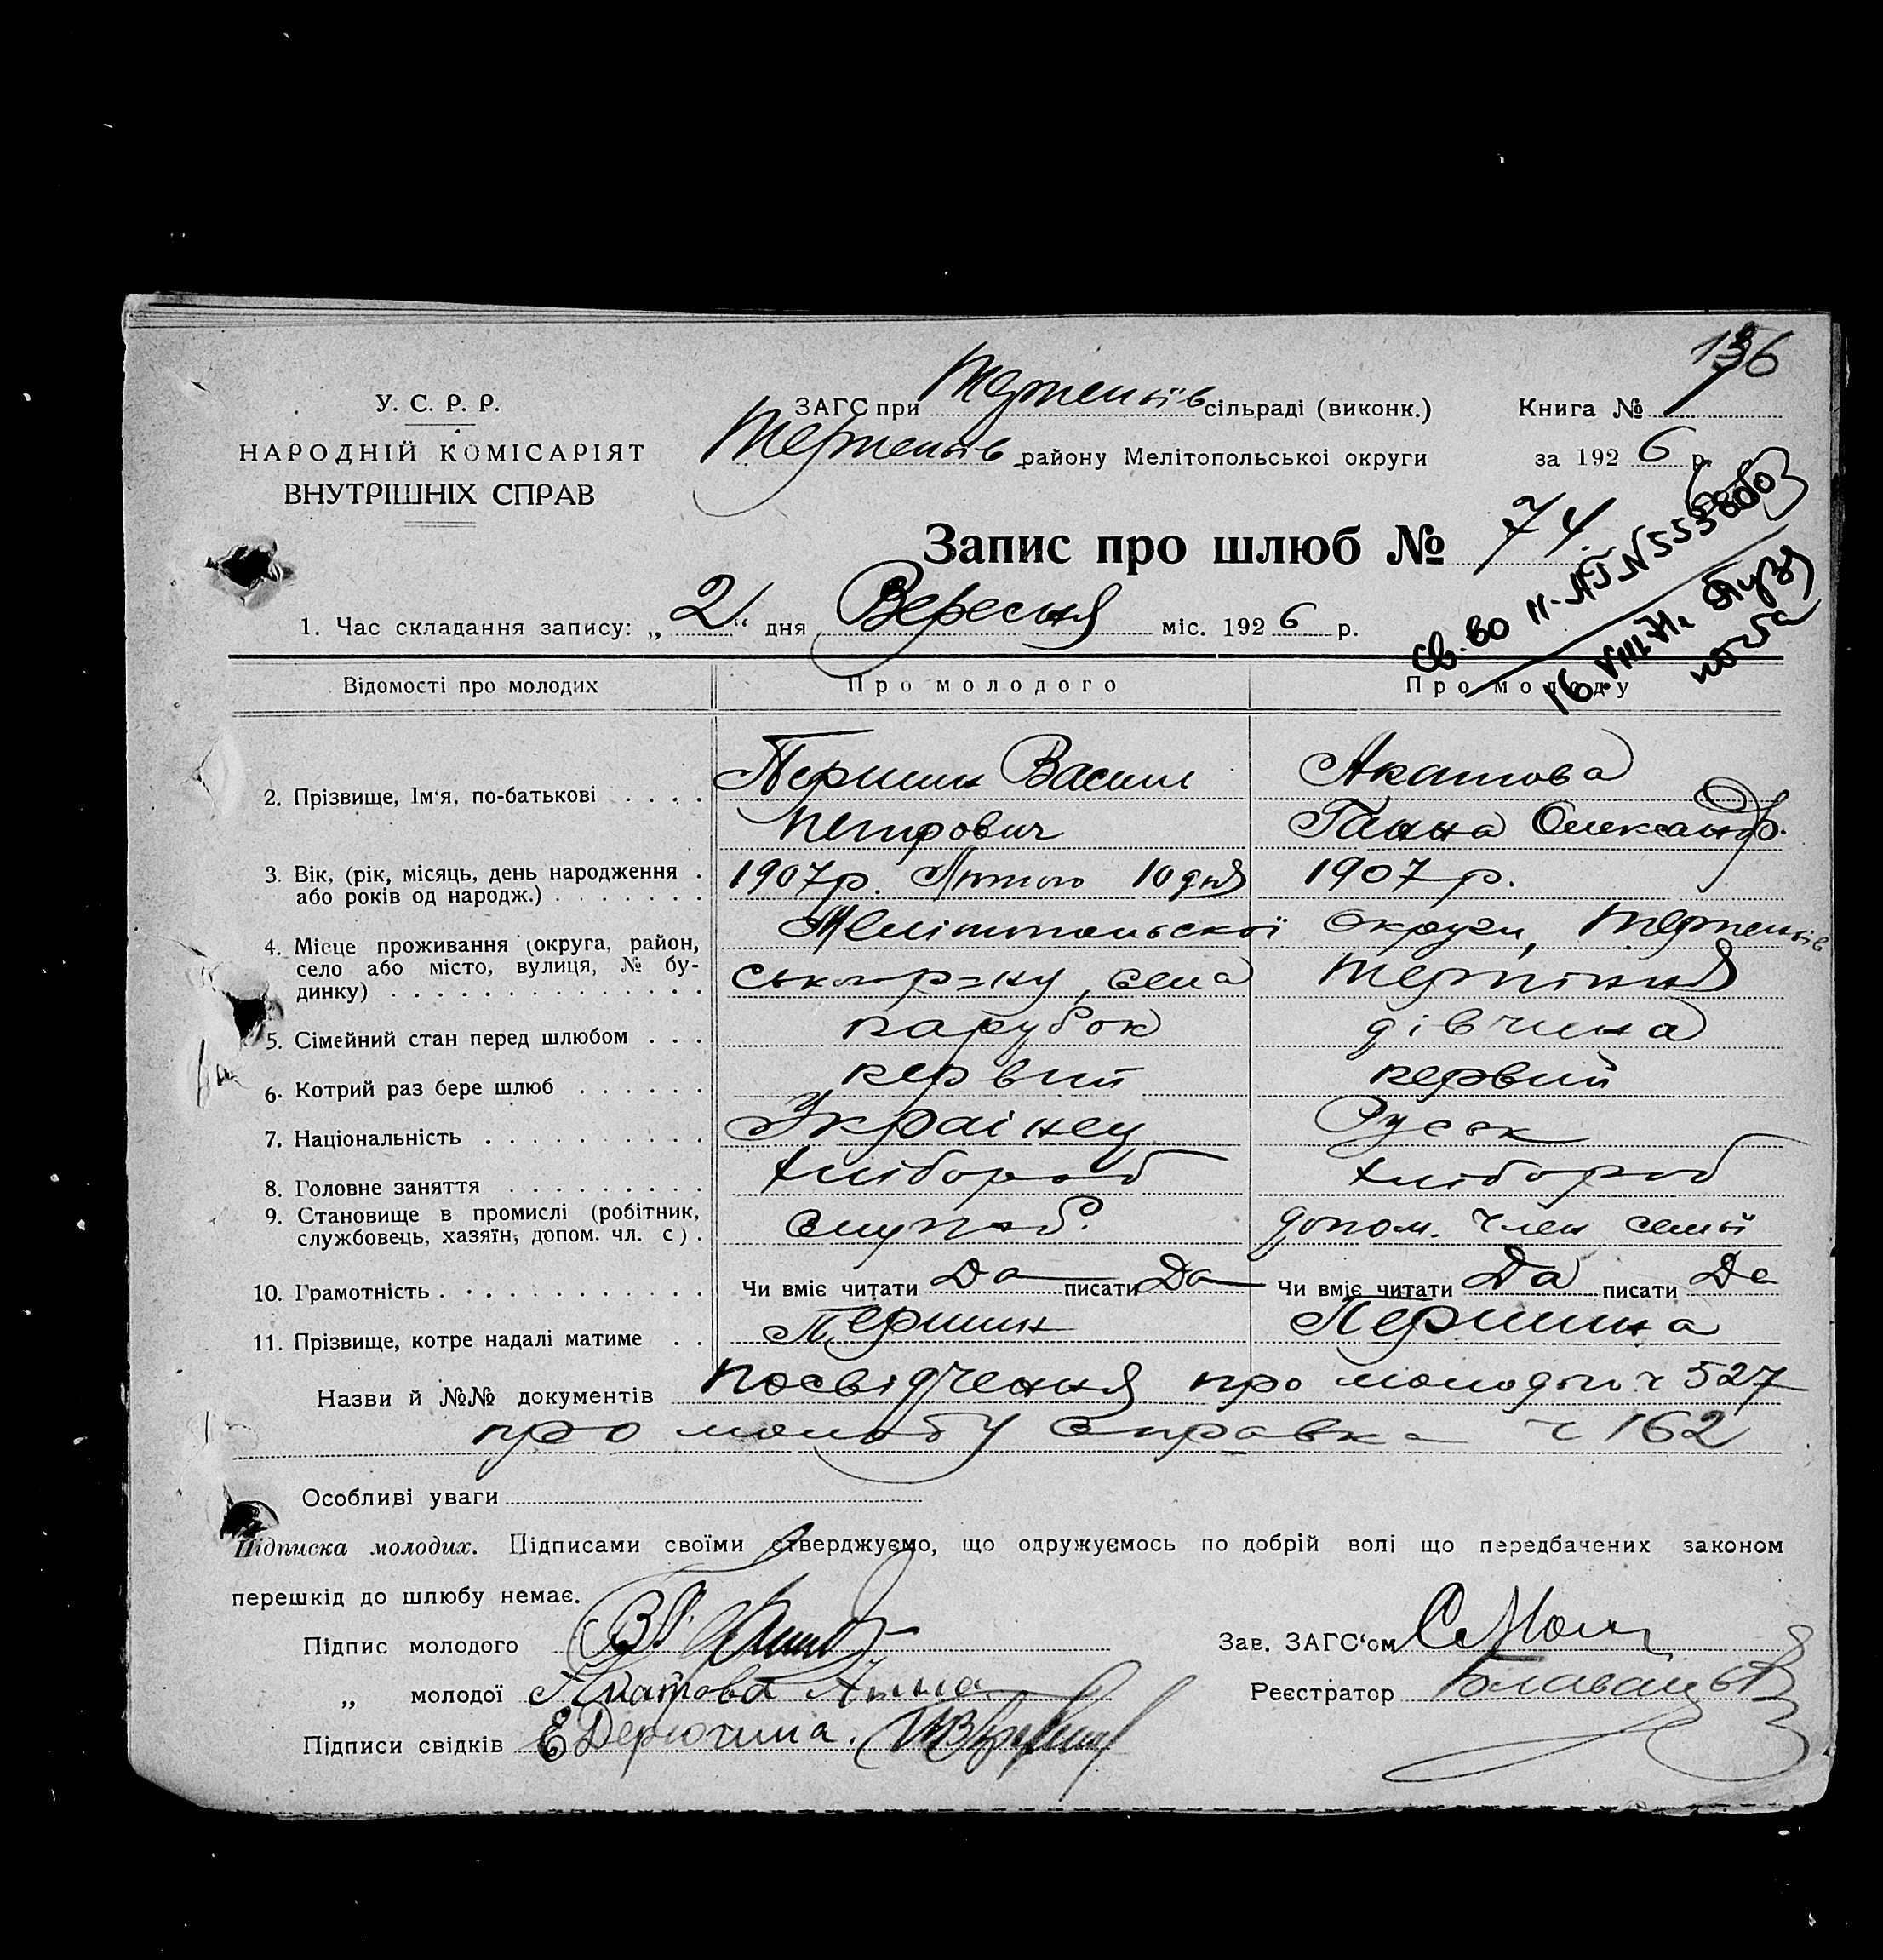 136
У. С. Р. Р.
НАРОДНІЙ КОМІСАРІЯТ
ВНУТРІШНІХ СПРАВ
ЗАГС при Терпеньїв сільраді (виконк.)
Терпеньїв району Мелітопольськоі округи
Книга №
за 1926 р.
Запис про шлюб № 74.
св.-во II-АП N
16. VIII
1. Час складання запису: „2“ дня Вересня міс. 1926 р.
Відомості про молодих Про молодого Про молоду
2. Прізвище, Ім'я, по-батькові . . . . Першин Василь Акатова
Петрович Ганна Олександр.
3. Вік, (рік, місяць, день народження . 1907р. Лютого 10 дня 1907 р.
або років од народж.) . . . . . . .
4. Місце проживання (округа, район, Мелітопольскої Округи, Терпеньїв
село або місто, вулиця, № бу- ського р-ну, села Терпіння
динку) . . . . . . . . . . . . . .
5. Сімейний стан перед шлюбом . . . парубок дівчина
6. Котрий раз бере шлюб . . . . . . первий первий
7. Національність . . . . . . . . . . Украінец Руськ
8. Головне заняття . . . . . . . . . хлібороб хлібороб
9. Становище в промислі (робітник, допом. член семьї
службовець, хазяїн, допом. чл. с) .
10. Грамотність . . . . . . . . . . . . Чи вміє читати Да писати Да Чи вміє читати Да писати Да
11. Прізвище, котре надалі матиме . . Першин Першина
Назви й №№ документів Посвідчення про молодого ч 527
про молоду справка ч 162
Особливі уваги
Підписка молодих. Підписами своїми стверджуємо, що одружуємось по добрій волі що передбачених законом
перешкід до шлюбу немає.
Підпис молодого
Зав. ЗАГС'ом
„ молодої Акатова Анна
Реєстратор
Підписи свідків Е Дерюгина.